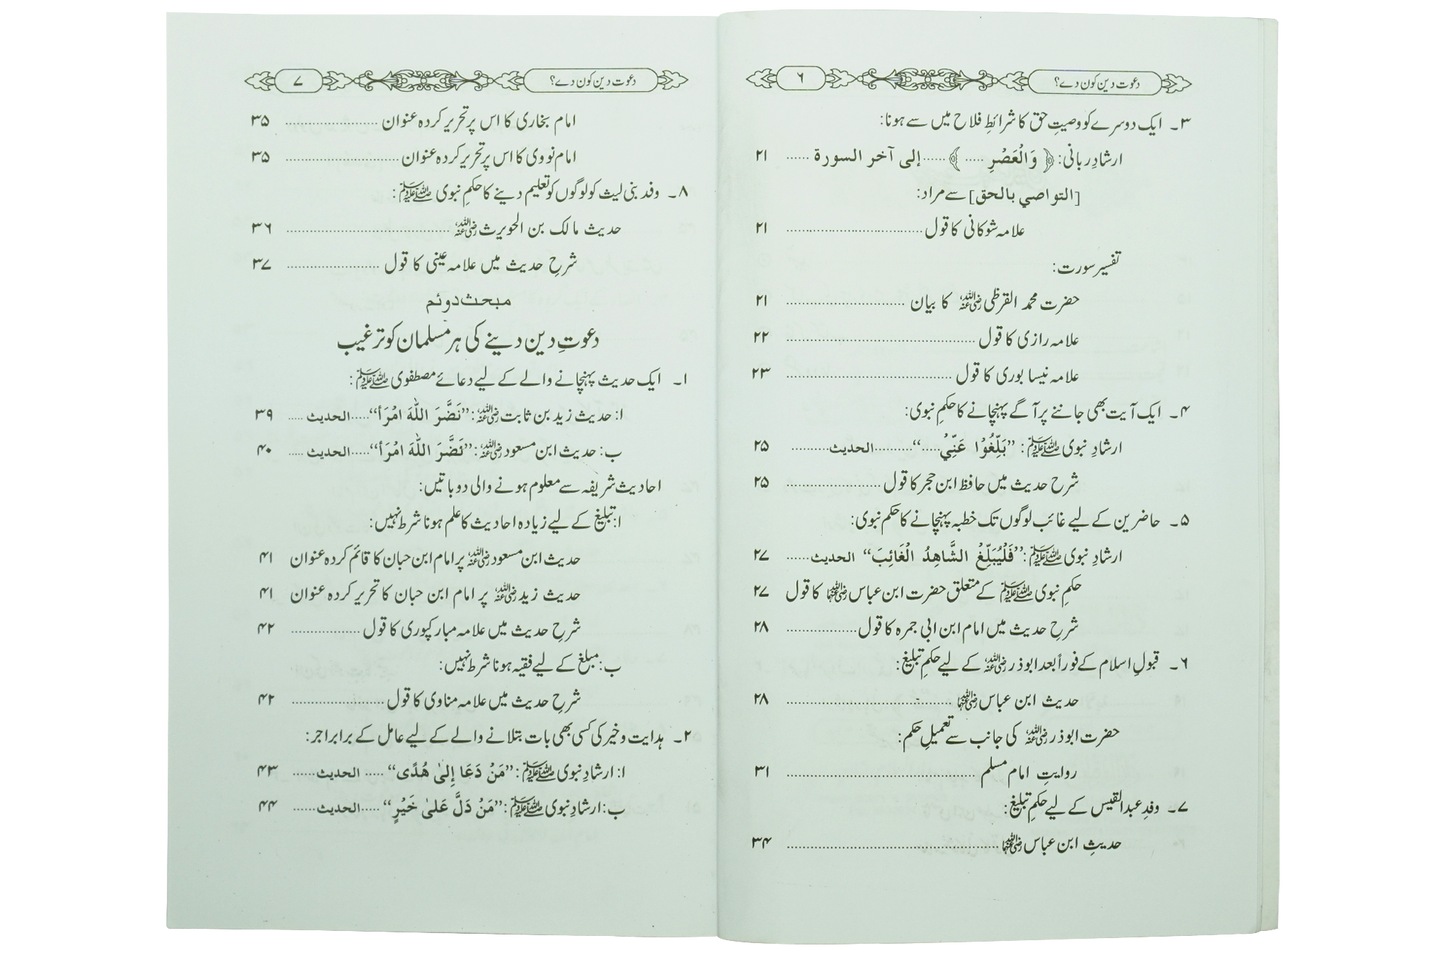 دعوت دین کون دے؟ ۶
۳۔ ایک دوسرے کو وصیتِ حق کا شرائطِ فلاح میں سے ہونا:
ارشادِ ربانی: ﴿ وَالْعَصْرِ ..... ﴾ ...... إلى آخر السورة ...... ۲۱
[التواصي بالحق] سے مراد:
علامہ شوکانی کا قول ...... ۲۱
تفسیر سورت:
حضرت محمد القرظی رضی اللہ عنہ کا بیان ...... ۲۱
علامہ رازی کا قول ...... ۲۲
علامہ نیسا بوری کا قول ...... ۲۳
۴۔ ایک آیت بھی جاننے پر آگے پہنچانے کا حکمِ نبوی:
ارشادِ نبوی ﷺ: ”بَلِّغُوْا عَنِّيْ.....“ ......... الحديث ...... ۲۵
شرح حدیث میں حافظ ابن حجر کا قول ...... ۲۵
۵۔ حاضرین کے لیے غائب لوگوں تک خطبہ پہنچانے کا حکم نبوی:
ارشادِ نبوی ﷺ: ”فَلْيُبَلِّغْ الشَّاهِدُ الْغَائِبَ“ الحديث ...... ۲۷
حکمِ نبوی ﷺ کے متعلق حضرت ابن عباس رضی اللہ عنہما کا قول ۲۷
شرح حدیث میں امام ابن ابی جمرہ کا قول ...... ۲۸
۶۔ قبولِ اسلام کے فوراً بعد ابوذر رضی اللہ عنہ کے لیے حکمِ تبلیغ:
حدیث ابن عباس رضی اللہ عنہما ...... ۲۸
حضرت ابوذر رضی اللہ عنہ کی جانب سے تعمیلِ حکم:
روایتِ امام مسلم ...... ۳۱
۷۔ وفدِ عبدالقیس کے لیے حکمِ تبلیغ:
حدیثِ ابن عباس رضی اللہ عنہما ...... ۳۴
دعوت دین کون دے؟ ۷
امام بخاری کا اس پر تحریر کردہ عنوان ...... ۳۵
امام نووی کا اس پر تحریر کردہ عنوان ...... ۳۵
۸۔ وفد بنی لیث کو لوگوں کو تعلیم دینے کا حکمِ نبوی ﷺ:
حدیث مالک بن الحویرث رضی اللہ عنہ ...... ۳۶
شرحِ حدیث میں علامہ عینی کا قول ...... ۳۷
مبحث دوئم
دعوتِ دین دینے کی ہر مسلمان کو ترغیب
۱۔ ایک حدیث پہنچانے والے کے لیے دعائے مصطفوی ﷺ:
ا: حدیث زید بن ثابت رضی اللہ عنہ: ”نَضَّرَ اللّٰهَ امْرَأً“ ..... الحديث ..... ۳۹
ب: حدیث ابن مسعود رضی اللہ عنہ: ”نَضَّرَ اللّٰهَ امْرَأً“ ..... الحديث ..... ۴۰
احادیث شریفہ سے معلوم ہونے والی دو باتیں:
ا: تبلیغ کے لیے زیادہ احادیث کا علم ہونا شرط نہیں:
حدیث ابن مسعود رضی اللہ عنہ پر امام ابن حبان کا قائم کردہ عنوان ۴۱
حدیث زید رضی اللہ عنہ پر امام ابن حبان کا تحریر کردہ عنوان ۴۱
شرح حدیث میں علامہ مبارکپوری کا قول ...... ۴۲
ب: مبلغ کے لیے فقیہ ہونا شرط نہیں:
شرحِ حدیث میں علامہ مناوی کا قول ...... ۴۲
۲۔ ہدایت و خیر کی کسی بھی بات بتلانے والے کے لیے عامل کے برابر اجر:
ا: ارشادِ نبوی ﷺ: ”مَنْ دَعَا إِلىٰ هُدًى“ ..... الحديث ...... ۴۳
ب: ارشادِ نبوی ﷺ: ”مَنْ دَلَّ عَلىٰ خَيْرٍ“ ..... الحديث ...... ۴۴